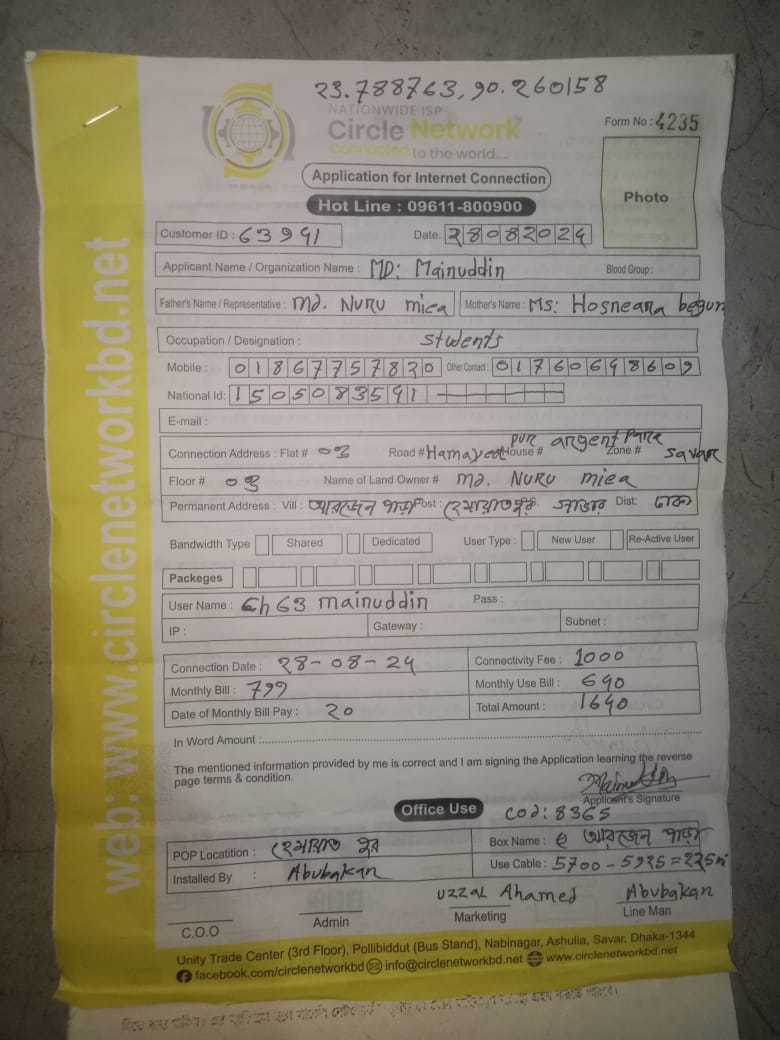 23.788763, 90.260158
NATIONWIDE ISP
Circle Network
Connected to the world....
Form No : 4235
Application for Internet Connection
Photo
Hot Line : 09611-800900
Customer ID : 63991
Date: 28082024
Applicant Name / Organization Name : MD: Mainuddin Blood Group :
Father's Name / Representative : Md. NURU miea Mother's Name : Ms: Hosneara begum
Occupation / Designation : students
Mobile : 01867757820 Other Contact : 01760698609
National Id: 1505083591
E-mail :
Connection Address : Flat # 03 Road # Hamayeot House # pur argent Para Zone # savar
Floor # 03 Name of Land Owner # Md. NURU miea
Permanent Address : Vill : আরজেন পাড়া Post : হেমায়েতপুর সাভার Dist: ঢাকা
Bandwidth Type Shared Dedicated User Type : New User Re-Active User
Packeges
User Name : Ch63 mainuddin Pass :
IP : Gateway : Subnet :
Connection Date : 28-08-24 Connectivity Fee : 1000
Monthly Bill : 799 Monthly Use Bill : 640
Date of Monthly Bill Pay : 20 Total Amount : 1640
In Word Amount :
The mentioned information provided by me is correct and I am signing the Application learning the reverse
page terms & condition.
Applicant's Signature
Office Use
cod: 8365
POP Locatition : হেমায়েত পুর Box Name : আরজেন পাড়া
Installed By : Abubakan Use Cable : 5700 - 5925 = 225m
C.O.O Admin Uzzal Ahamed Marketing Abubakan Line Man
Unity Trade Center (3rd Floor), Pollibiddut (Bus Stand), Nabinagar, Ashulia, Savar, Dhaka-1344
facebook.com/circlenetworkbd info@circlenetworkbd.net www.circlenetworkbd.net
web: www.circlenetworkbd.net